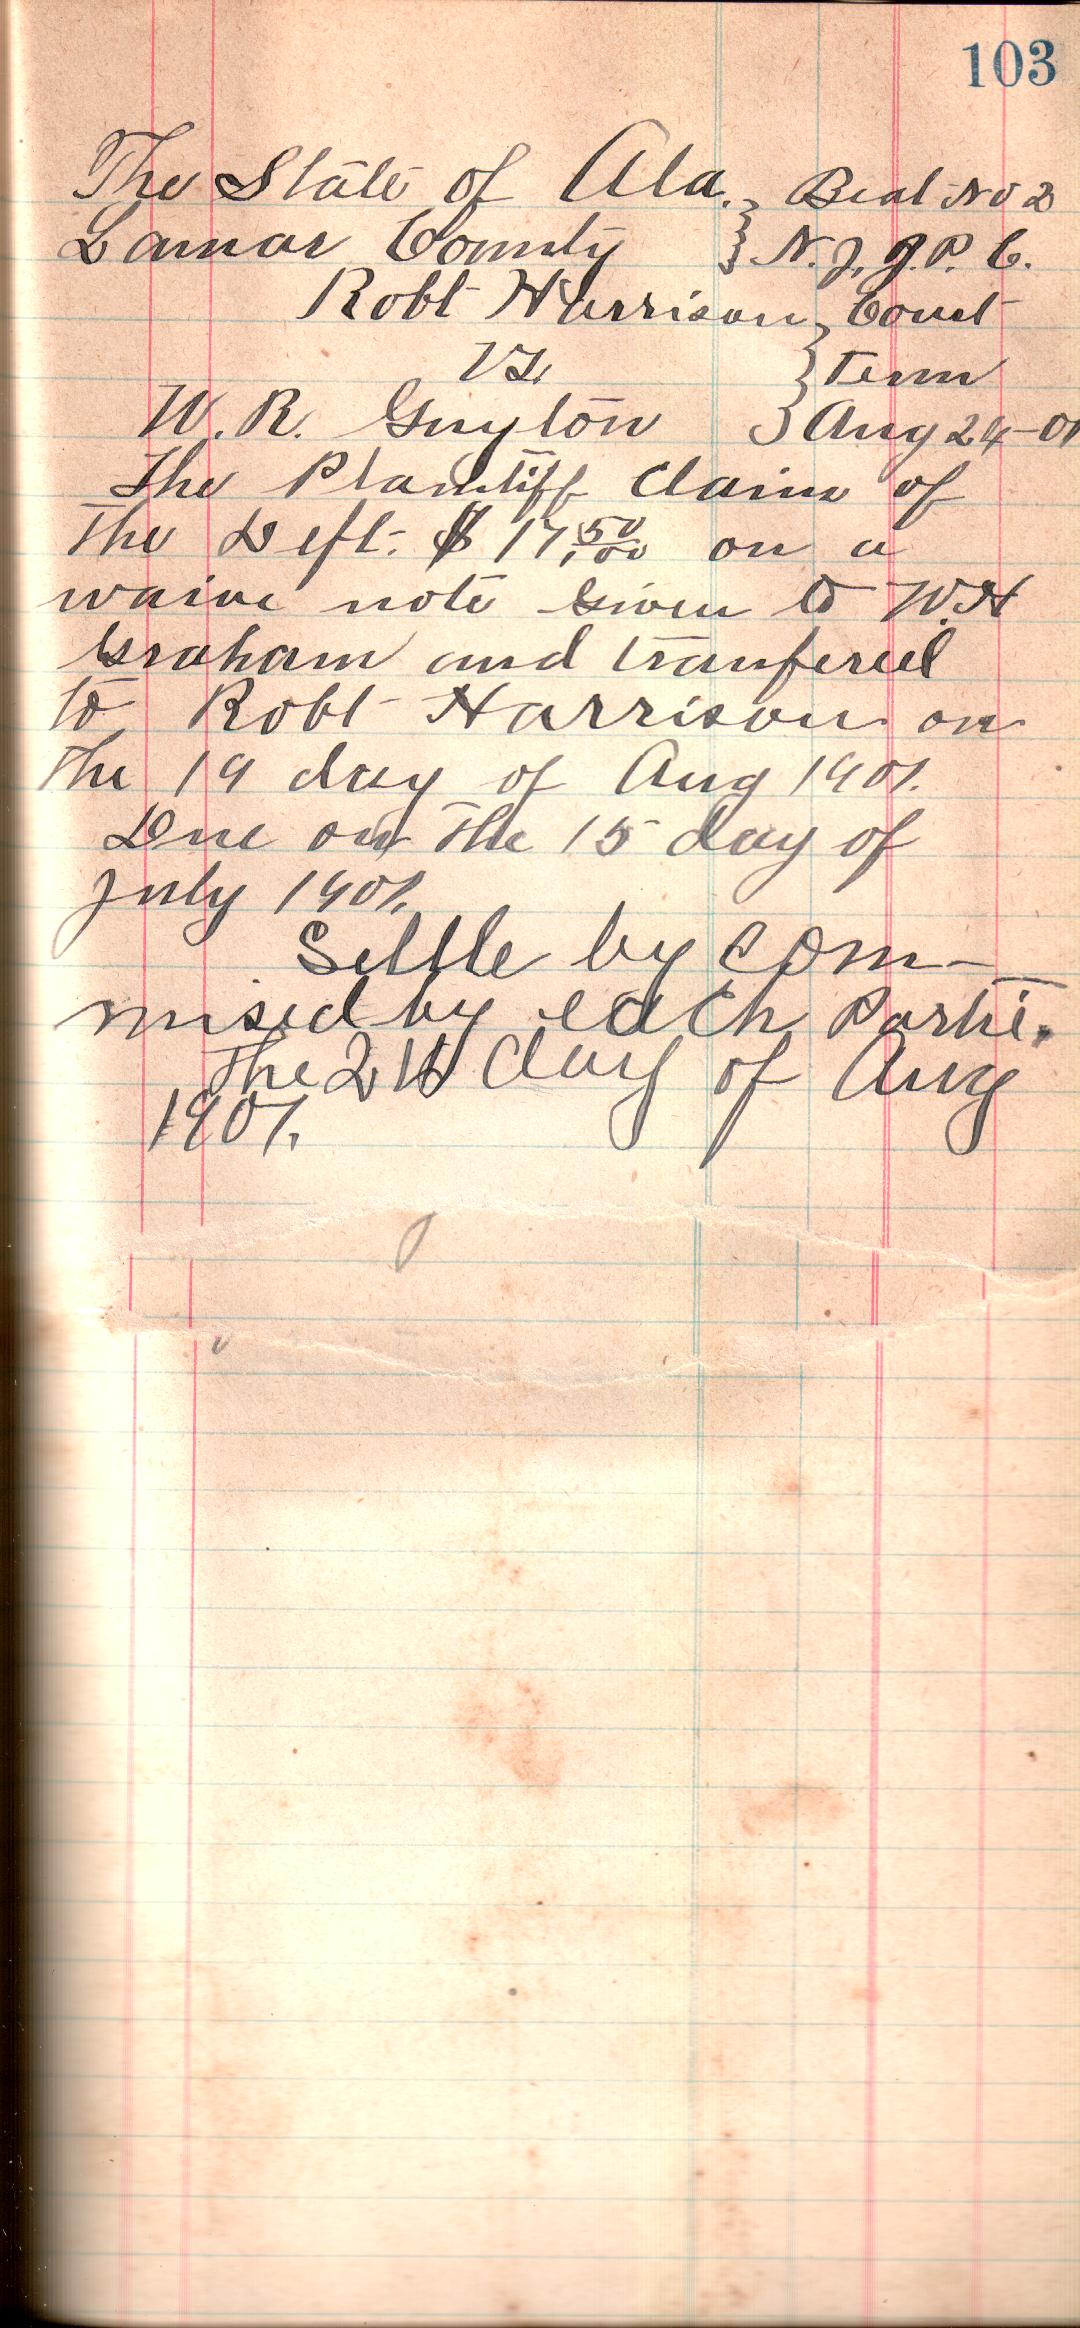 103
The State of Ala. } Beat No 2
Lamar County } N.J, J.P. C.
Robt Harrison } Court
VS. } Term
W. R. Guyton } Aug 24-01
The Plaintiff claim of
The Deft. $ 17, 50/00 on a
waive note Given to W.H
Graham and tranfered
to Robt Harrison on
The 19 day of Aug 1901.
Due on The 15 day of
July 1901.
Settle by com-
mised by each Partie.
The day of Aug
1901.